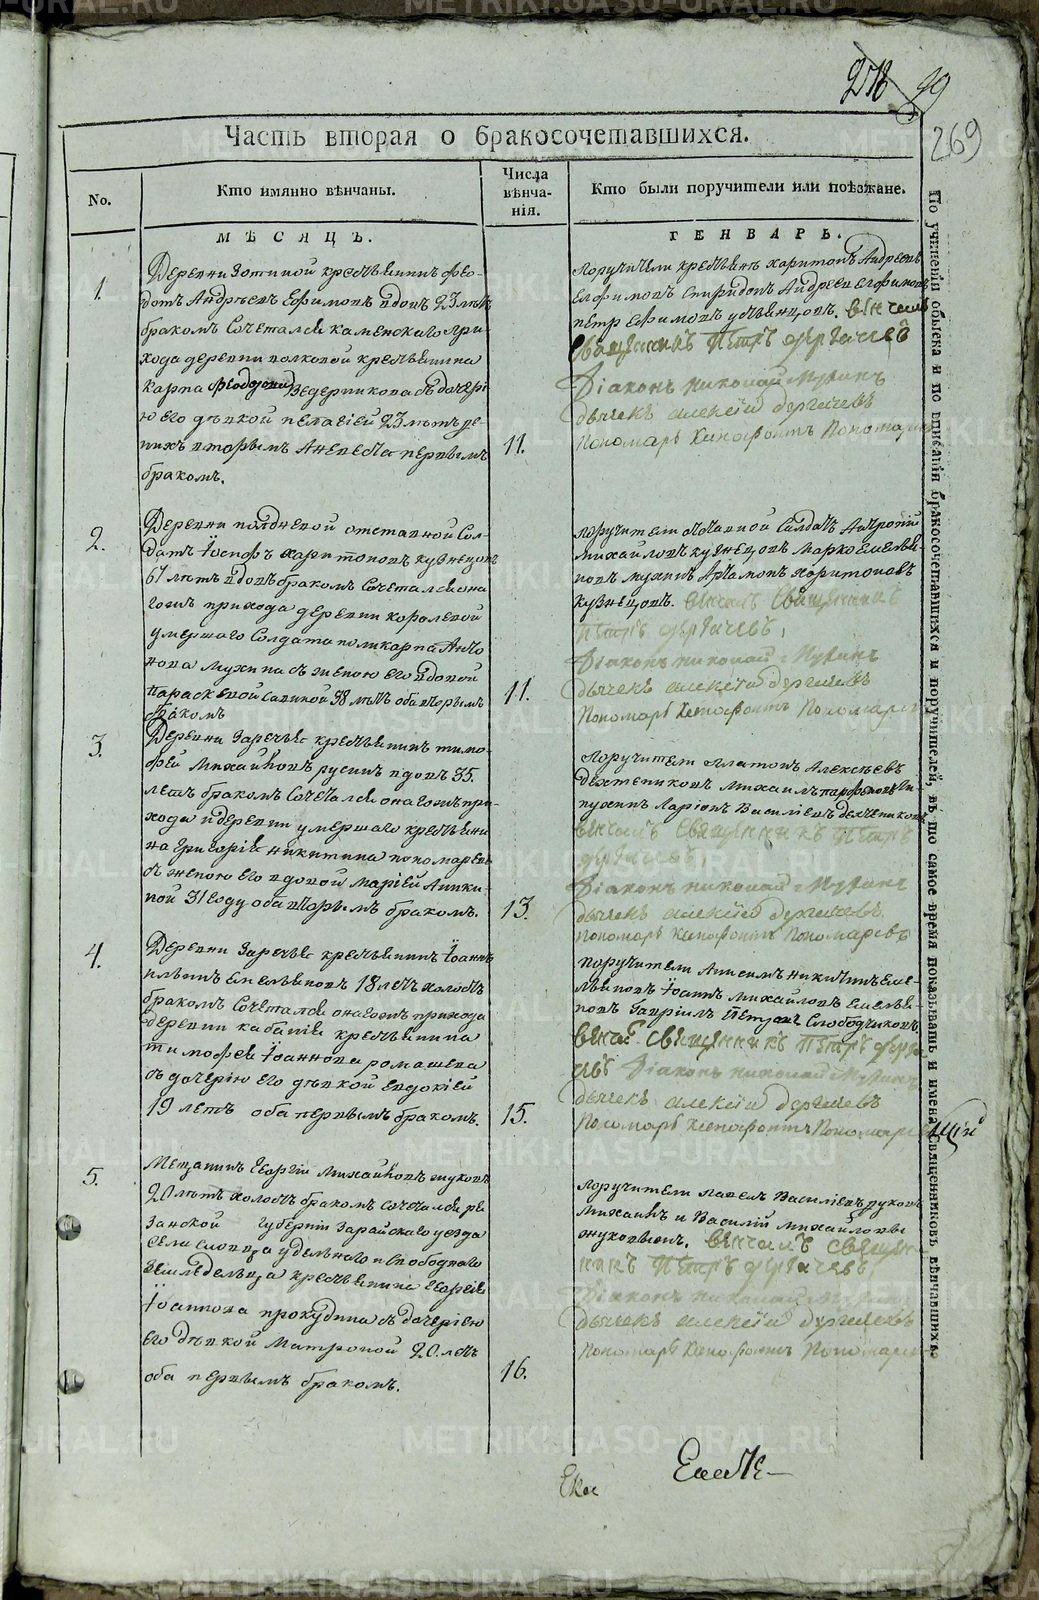 METRIKI.GASO-URAL.RU
99
269
Часть вторая о бракосочетавшихся.
No.
Кто имянно вѣнчаны.
Числа вѣнча-нія.
Кто были поручители или поѣзжане.
МѢСЯЦЪ.
ГЕНВАРЬ.
1.
Деревни Зотиной крестьянинъ Фео-
дотъ Андреевъ Ефимовъ вдовъ 23 лѣтъ
бракомъ сочетался Каменскаго при-
хода деревни Волковой крестьянина
Карпа Ведерникова съ дочері-
ю его дѣвкой Пелагіей 23 лѣтъ
вторымъ а невеста первымъ
бракомъ.
11.
Поручители крестьяне Харитонъ Андреевъ
Елфимовъ Спиридонъ Андреевъ Елфимовъ
Петръ Ефимовъ венчалъ
Священникъ Петръ Дергачевъ
Діаконъ Николай Мухинъ
Дьячекъ Алексій Дергачевъ
Пономарь Ксенофонтъ Пономарев
2.
Деревни Полдневой отставной Сол-
датъ Іосифъ Харитоновъ Кузнецовъ
67 лѣтъ вдовъ бракомъ сочетался она
гожъ прихода деревни Королевой
умершаго Солдата Поликарпа Анто
нова Мухина съ женою его вдовой
Параскевой Савиной 38 лѣтъ оба вторымъ
бракомъ
11.
Поручители Солдатъ
Михайловъ Кузнецовъ Марко Емелья
новъ Мухинъ Артамонъ Харитоновъ
Кузнецовъ. венчалъ Священникъ
Петръ Дергачевъ,
Діаконъ Николай Мухинъ
Дьячекъ Алексій Дергачевъ
Пономарь Ксенофонтъ Пономарев
3.
Деревни Заречья крестьянинъ Тимо-
фей Михайловъ Русинъ вдовъ 35.
летъ бракомъ сочетался онагожъ при-
хода и деревни умершаго крестьяни
на Григорія Никитина Пономарева
съ женою его вдовой Маріей Аники-
ной 31 году оба вторымъ бракомъ.
13.
Поручители Платонъ Алексѣевъ
Михаилъ Парфеновъ Ла-
пухинъ Ларіонъ Васильевъ
венчалъ Священникъ Петръ
Дергачевъ
Діаконъ Николай Мухинъ
Дьячекъ Алексій Дергачевъ.
Пономарь Ксенофонтъ Пономаревъ
4.
Деревни Заречья крестьянинъ Іоаннъ
Ильинъ Емельяновъ 18 летъ холостъ
бракомъ сочетался онагожъ прихода
деревни Кабаньи крестьянина
Тимофея Іоаннова Ромашева
съ дочерію его дѣвкой Евдокіей
19 летъ оба первымъ бракомъ.
15.
Поручители Анисимъ Никитинъ Еме-
льяновъ Іоаннъ Михайловъ Емелья-
новъ Гавріилъ Петровъ Слободчиковъ
венчалъ Священникъ Петръ Дерга-
чевъ Діаконъ Николай Мухинъ
Дьячекъ Алексій Дергачевъ
Пономарь Ксенофонтъ Пономарев
5.
Мещанинъ Георгій Михайловъ Жуковъ
20 лѣтъ холостъ бракомъ сочетался Ре
занской губерніи Зарайскаго уезда
села удельнаго свободнаго
земледельца крестьянина Георгія
Іоаннова Прокудина съ дочерію
его дѣвкой Матроной 20. летъ
оба первымъ бракомъ.
16.
Поручители Павелъ Василіевъ
Михаилъ и Василій Михайловы
Жуковыи. венчалъ Священ-
никъ Петръ Дергачевъ
Діаконъ Николай Мухинъ
Дьячекъ Алексій Дергачевъ
Пономарь Ксенофонтъ Пономарев
По учиненіи обыска и по вписаніи бракосочетавшихся и поручителей, въ то самое время показывать и имена священниковъ вѣнчавшихъ.